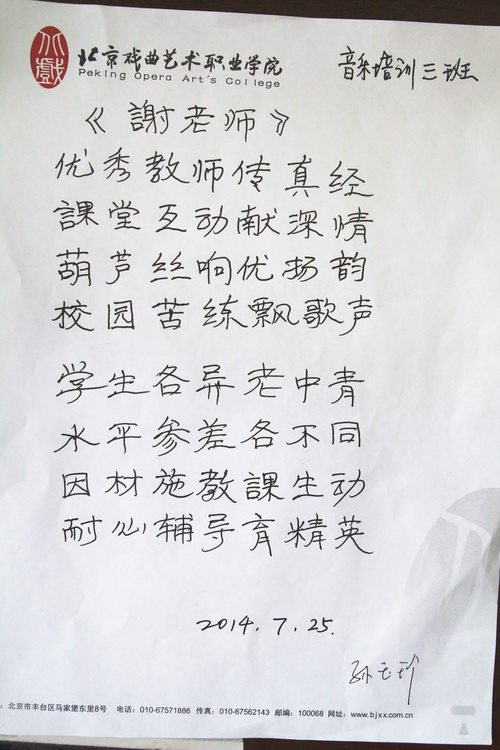 北戲
北京戏曲艺术职业学院
Peking Opera Art's College
音乐培训三班
《謝老师》
优秀教师传真经
課堂互动献深情
葫芦丝响优扬韵
校园苦练飘歌声
学生各异老中青
水平参差各不同
因材施教課生动
耐心辅导育精英
2014.7.25.
孙玉珍
：北京市丰台区马家堡东里8号 电话：010-67571886 传真：010-67562143 邮编：100068 网址：www.bjxx.com.cn